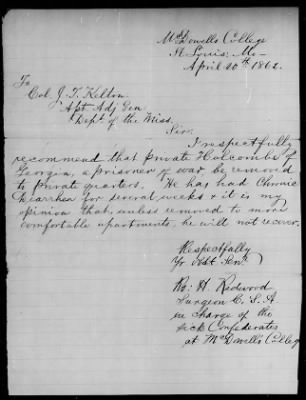 McDowells College
St Louis, Mo-
April 20th 1862.
To
Col. J. T. Kelton
Asst Adj Gen
Dept of the Miss.
Sir:
I respectfully
recommend that private Holcombe of
Georgia, a prisoner of war, be removed
to private quarters. He has had Chronic
Diarrhea for several weeks & it is my
opinion that, unless removed to more
comfortable apartments, he will not recover.
Respectfully
Yr obt Servt
Ro: H. Redwood
Surgeon C. S. A.
in Charge of the
sick Confederates
at McDowells College